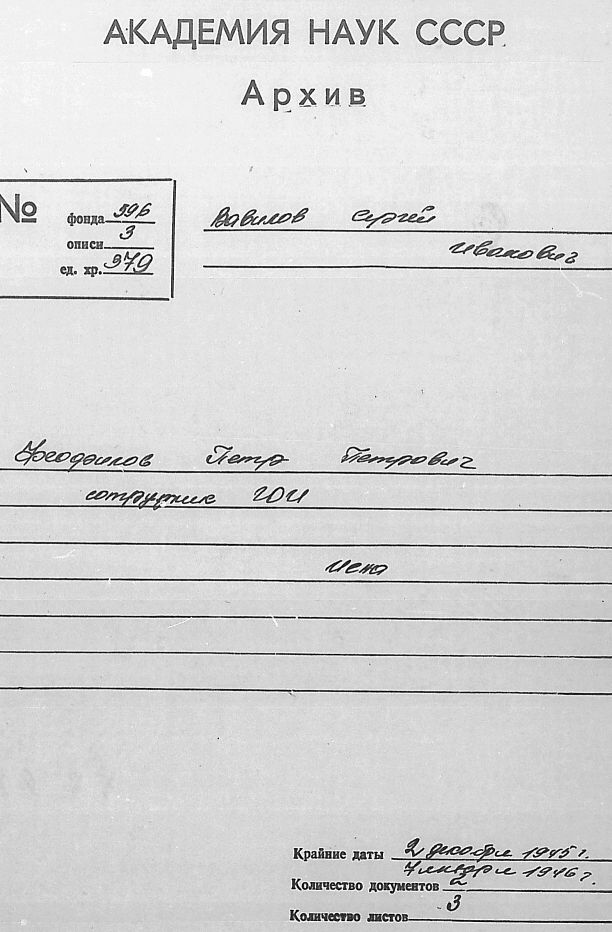 АКАДЕМИЯ НАУК СССР
Архив
№
фонда 596
описи 3
ед. хр. 379
Вавилов Сергей
Иванович
Феофилов Петр Петрович
сотрудник ГОИ
Иена
Крайние даты 2 декабря 1945 г.
7 января 1946 г.
Количество документов 2
Количество листов 3